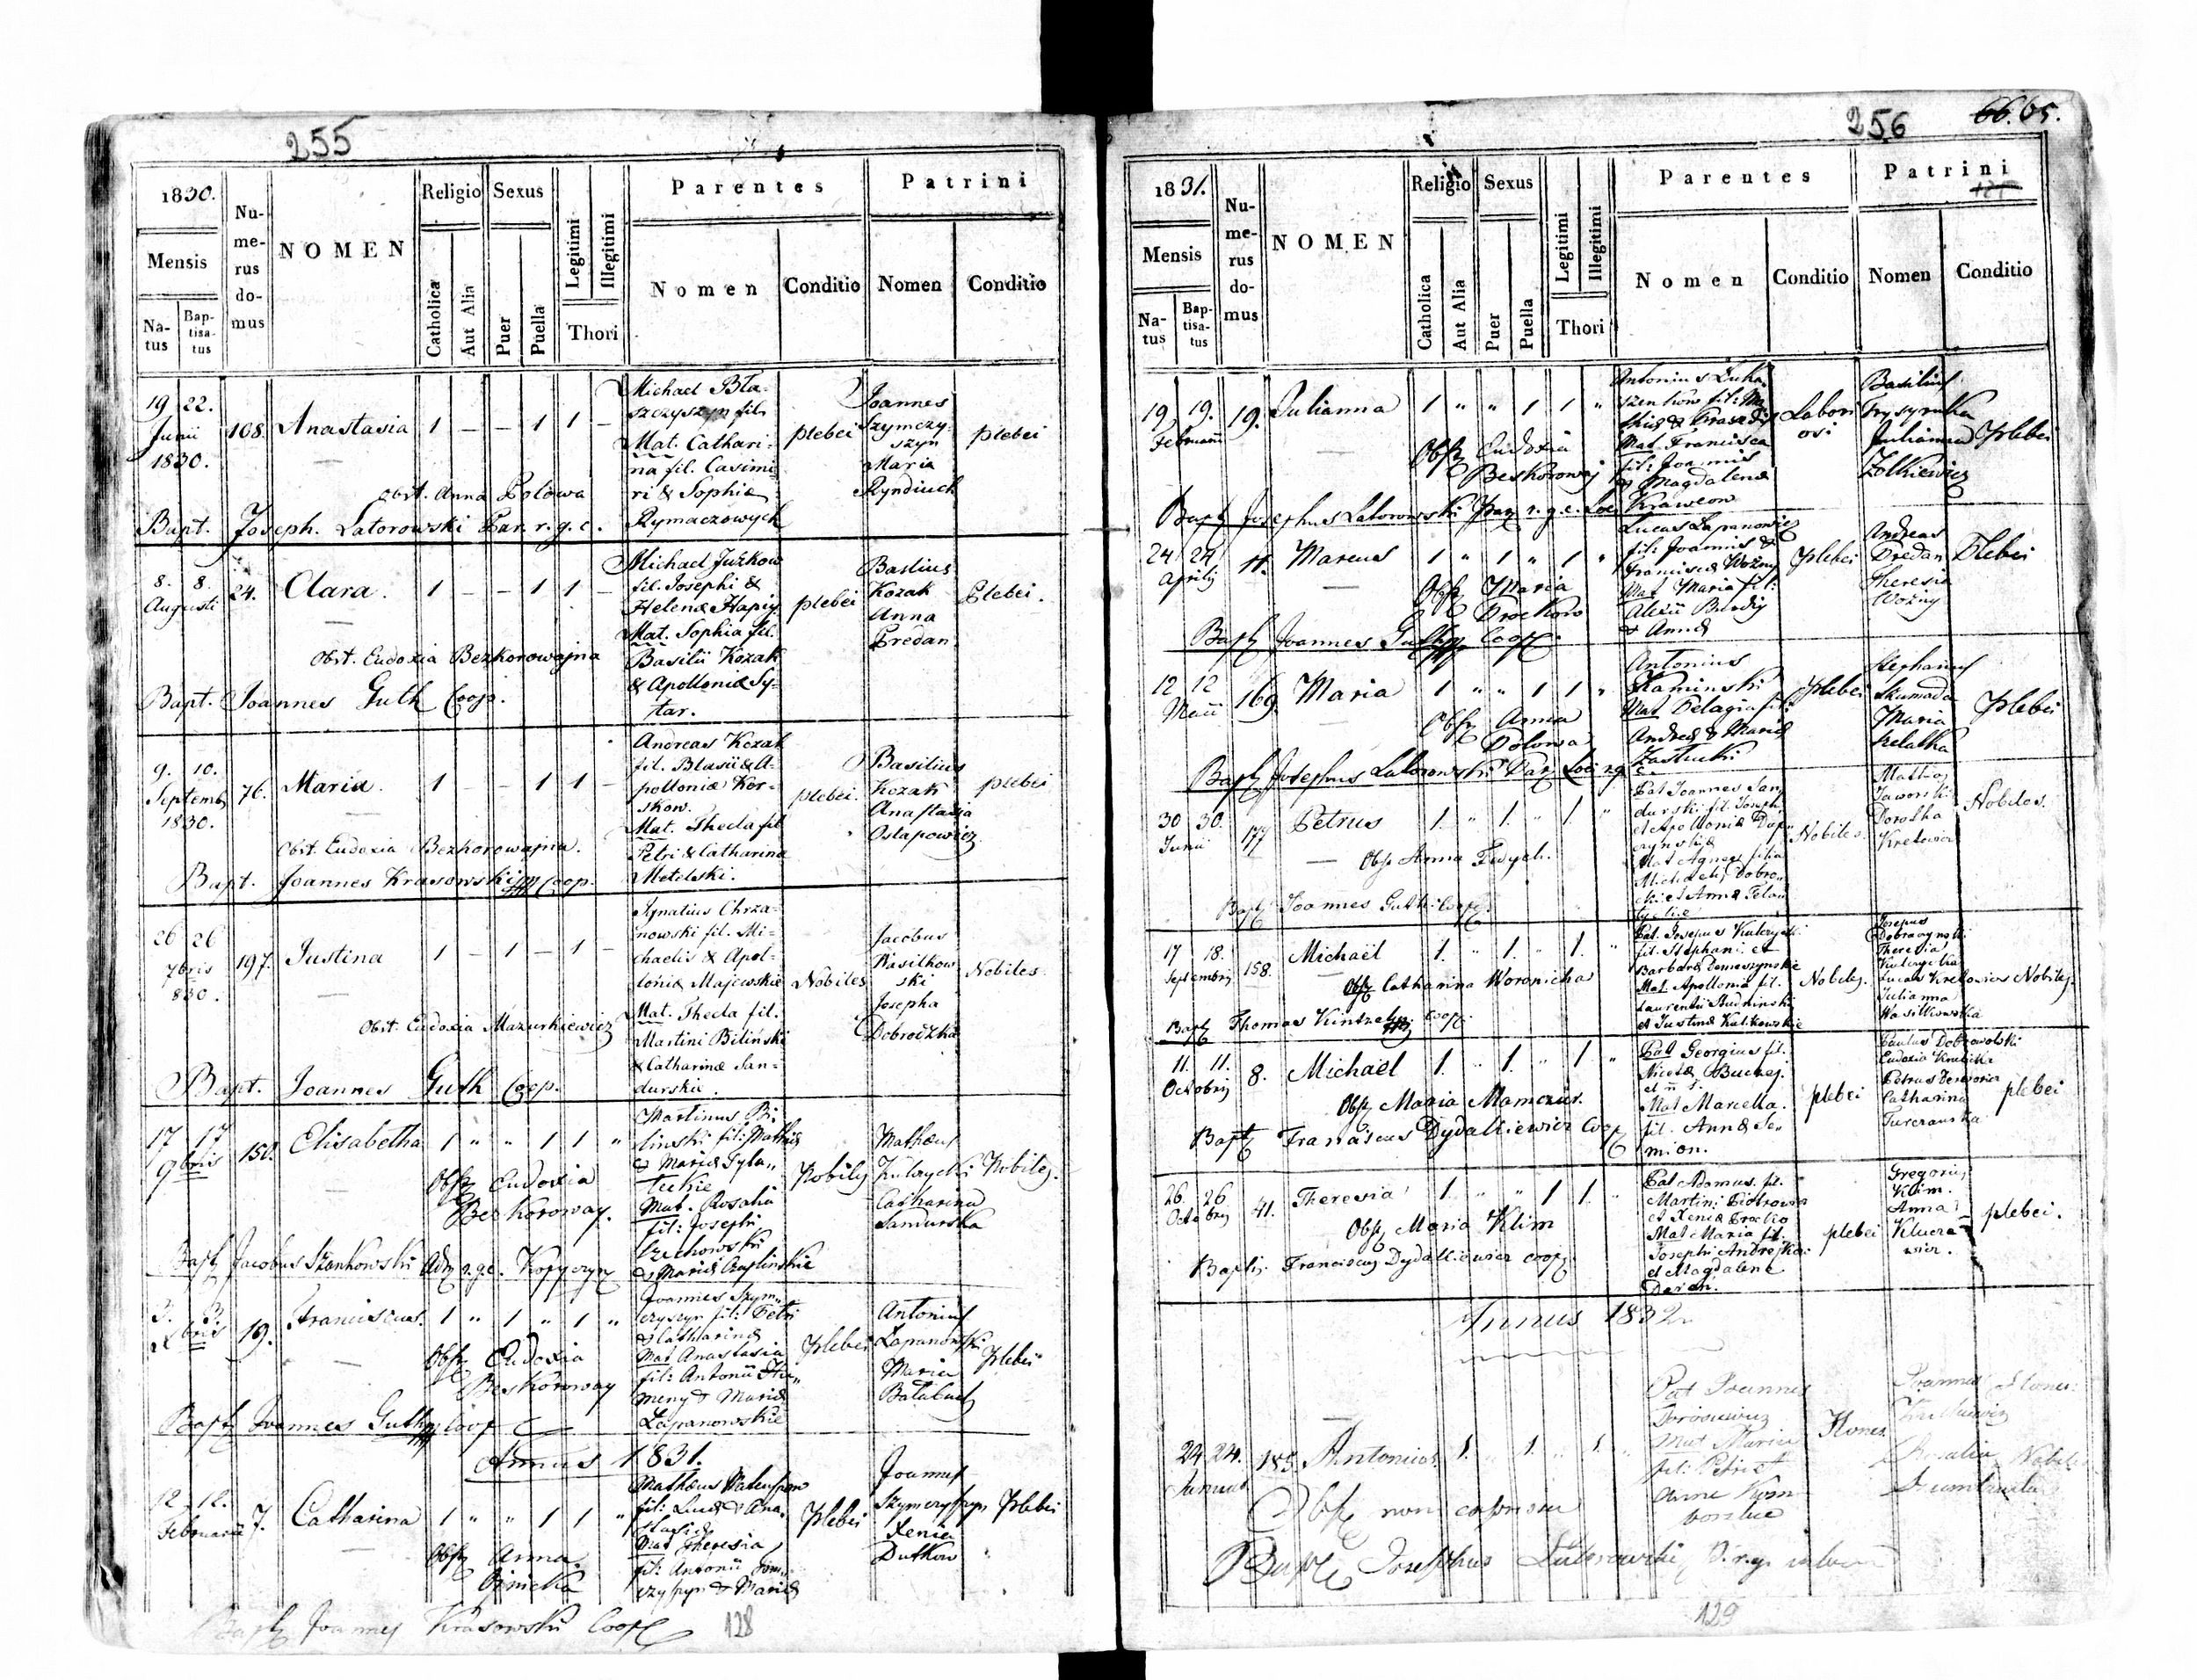 255
1830.
Mensis
Na-
tus
Bap-
tisa-
tus
Nu-
me-
rus
do-
mus
NOMEN
Religio
Catholica
Aut Alia
Sexus
Puer
Puella
Legitimi
Illegitimi
Thori
Parentes
Nomen
Conditio
Patrini
Nomen
Conditio
19 22.
Junii
1830.
108.
Anastasia
1 – – 1 1 –
Michael Bła-
szczyszyn fil.
Mat. Cathari-
na fil. Casimi-
ri & Sophiæ
Rymaczowych
plebei
Joannes
Szymczy-
szyn
Maria
Ryndiuch
plebei
Obst. Anna Polowa
Bapt. Joseph. Latorowski Par. r. g. c.
8. 8.
Augusti
24.
Clara.
1 – – 1 1 –
Michael Juzkow
fil. Josephi &
Helenæ Hapiy
Mat. Sophia fil.
Basilii Kozak
& Apolloniæ Sy-
tar.
plebei
Basilius
Kozak
Anna
Predan
Plebei.
Obst. Eudoxia Bezkorowajna
Bapt. Joannes Guth Coop.
9. 10.
Septemb
1830.
76.
Maria.
1 – – 1 1 –
Andreas Kozak
fil. Blasii & A-
polloniæ Kor-
skow.
Mat. Thecla fil
Petri & Catharinæ
Metelski.
plebei.
Basilius
Kozak
Anastasia
Ostapowicz
plebei
Obst. Eudoxia Bezkorowajna.
Bapt. Joannes Krasowski Coop.
26 26
7bris
830.
197.
Justina
1 – 1 – 1 –
Ignatius Chrza-
nowski fil. Mi-
chaelis & Apol-
loniæ Majewskie
Mat. Thecla fil.
Martini Biliński
& Catharinæ San-
durskie.
Nobiles
Jacobus
Wasilkow
ski
Josepha
Dobrodzka
Nobiles
Obst. Eudoxia Mazurkiewicz
Bapt. Joannes Guth Coop.
17 17
9bris
150.
Elisabetha
1 " " 1 1 "
Martinus Bi-
linski fil: Mathiæ
& Mariæ Tyla„
teckie
Mat. Rosalia
fil: Josephi
Czechowski
& Mariæ Czaplinskie
Nobiles
Mathæus
Kulczycki
Catharina
Sandurska
Nobiles.
Obst Eudoxia
Bezkoroway.
Bapt Jacobus Szankowski Adm r.g.c. Kopyczyn
3. 3.
Xbris
19.
Franciscus.
1 " 1 " 1 "
Joannes Szym„
czyszyn fil: Petri
& Catharinæ
Mat Anastasia
fil: Antonii
meny & Mariæ
Lapanowskie
Plebei
Antonius
Lapanowski
Maria
Balabuch
Plebei
Obst Eudoxia
Beskoroway
Bapt Joannes Guth Coop
Annus 1831.
12 12.
Februarii
7.
Catharina
1 " " 1 1 "
Mathæus
fil: Lucæ & Ana„
stasiæ
Mat Theresia
fil: Antonii Szym„
czyszyn & Mariæ
Plebei
Joannes
Szymczyszyn
Xenia
Dutkow
Plebei
Obst Anna
Bapt Joannes Krasowski Coop
128
256
66. 65.
1831.
Mensis
Na-
tus
Bap-
tisa-
tus
Nu-
me-
rus
do-
mus
NOMEN
Religio
Catholica
Aut Alia
Sexus
Puer
Puella
Legitimi
Illegitimi
Thori
Parentes
Nomen
Conditio
Patrini
Nomen
Conditio
19 19.
Februarii
19.
Julianna
1 " " 1 1 "
Antonius Luka
szenkow fil: Ma
Mat. Francisca
fil: Joannis
& Magdalenæ
Krawcow
Labori
osi
Basilius
Julianna
Zolkiewicz
Plebei
Obst Eudoxia
Beskorowaj
Bapt Josephus Latorowski Par r. g. c. Loci
24 24
Aprilis
11.
Marcus
1 " 1 " 1 "
Lucas Lapanowicz
fil: Joannis &
Franciscæ Wozny
Mat Maria fil:
Alexii Burdiy
& Annæ
Plebei
Andreas
Predan
Theresia
Wozny
Plebei
Obst Maria
Prockow
Bapt Joannes Guth Coop.
12 12
Maii
169.
Maria
1 " " 1 1 "
Antonius
Kaminski
Mat Pelagia fil:
Andreæ & Mariæ
Zastucki
Plebei
Stephanus
Skumada
Maria
Plebei
Obst Anna
Polowa
Bapt Josephus Latorowski Par Loci r.g.
30 30.
Junii
177
Petrus
1. " 1. " 1 "
Pat Joannes San
durski fil. Joseph
et Apolloniæ
Mat Agnes filia
Michaelis Dobro„
Nobiles.
Mathias
Jaworski
Dorotha
Kretowicz
Nobiles.
Obst Anna
Bapt Joannes Guth Coop.
17 18.
Septembris
158.
Michaël
1. " 1. " 1. "
Pat. Josephus Kulczycki
fil. Stephani et
Barbaræ Demeszynskie
Mat. Apollonia fil.
Laurentii Rudninski
et Justinæ Kulikowskie
Nobiles.
Josepus
Dobraczynski
Theresia
Lucas Kretowicz
Julianna
Wasilkowska
Nobiles.
Obst Catharina Woronicha
Bapt Thomas Kintzel Coop.
11. 11.
Octobris
8.
Michaël
1. " 1. " 1 "
Pat Georgius fil.
Nicolæ Buchej.
Mat Marcella.
fil. Annæ Se„
mion.
plebei
Paulus Dobrowolski
Eudoxia
Petrus
Catharina
plebei
Obst Maria Mamczur.
Bapt Franciscus Dydalkiewicz Coop
26. 26
Octobris
41.
Theresia
1. " " 1 1. "
Pat Adamus fil.
Martini Piotrowsk
et Xeniæ Procko
Mat Maria fil.
Josephi Andrejka
et Magdalenæ
Deren.
plebei
Gregorius
Klim.
Anna
plebei.
Obst Maria Klim
Baptiz. Franciscus Dydalkiewicz coop.
Annus 1832.
24 24.
Januar
185.
Antonius
1. " 1. " 1. "
Pat Joannes
Mat Maria
fil: Petri et
Annæ
Hones.
Joannes
Rosalia
Hones:
Nobiles
Obst non
Bapt Josephus Latorowski
129